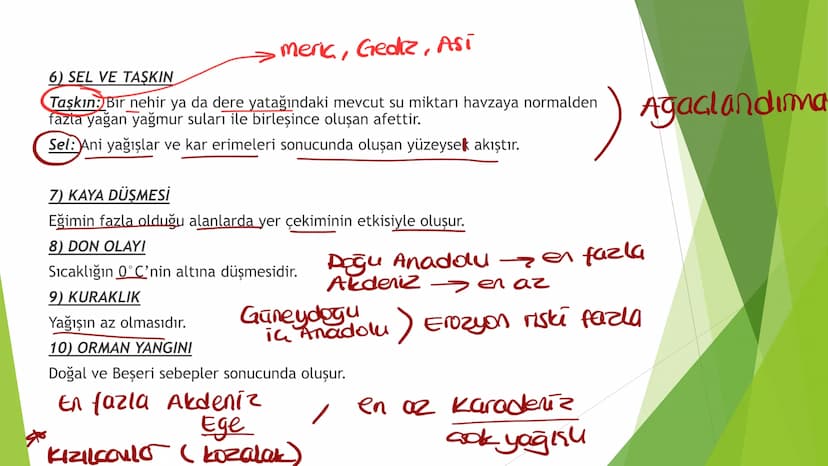 Meriç, Gediz, Asi
6) SEL VE TAŞKIN
Taşkın: Bir nehir ya da dere yatağındaki mevcut su miktarı havzaya normalden
fazla yağan yağmur suları ile birleşince oluşan afettir.
Ağaçlandırma
Sel: Ani yağışlar ve kar erimeleri sonucunda oluşan yüzeysel akıştır.
7) KAYA DÜŞMESİ
Eğimin fazla olduğu alanlarda yer çekiminin etkisiyle oluşur.
8) DON OLAYI
Sıcaklığın 0°C'nin altına düşmesidir.
Doğu Anadolu → en fazla
Akdeniz → en az
9) KURAKLIK
Yağışın az olmasıdır.
Güneydoğu
iç Anadolu ) Erozyon riski fazla
10) ORMAN YANGINI
Doğal ve Beşeri sebepler sonucunda oluşur.
En fazla Akdeniz / en az Karadeniz
Ege çok yağışlı
* Kızılçamlar (kozalak)